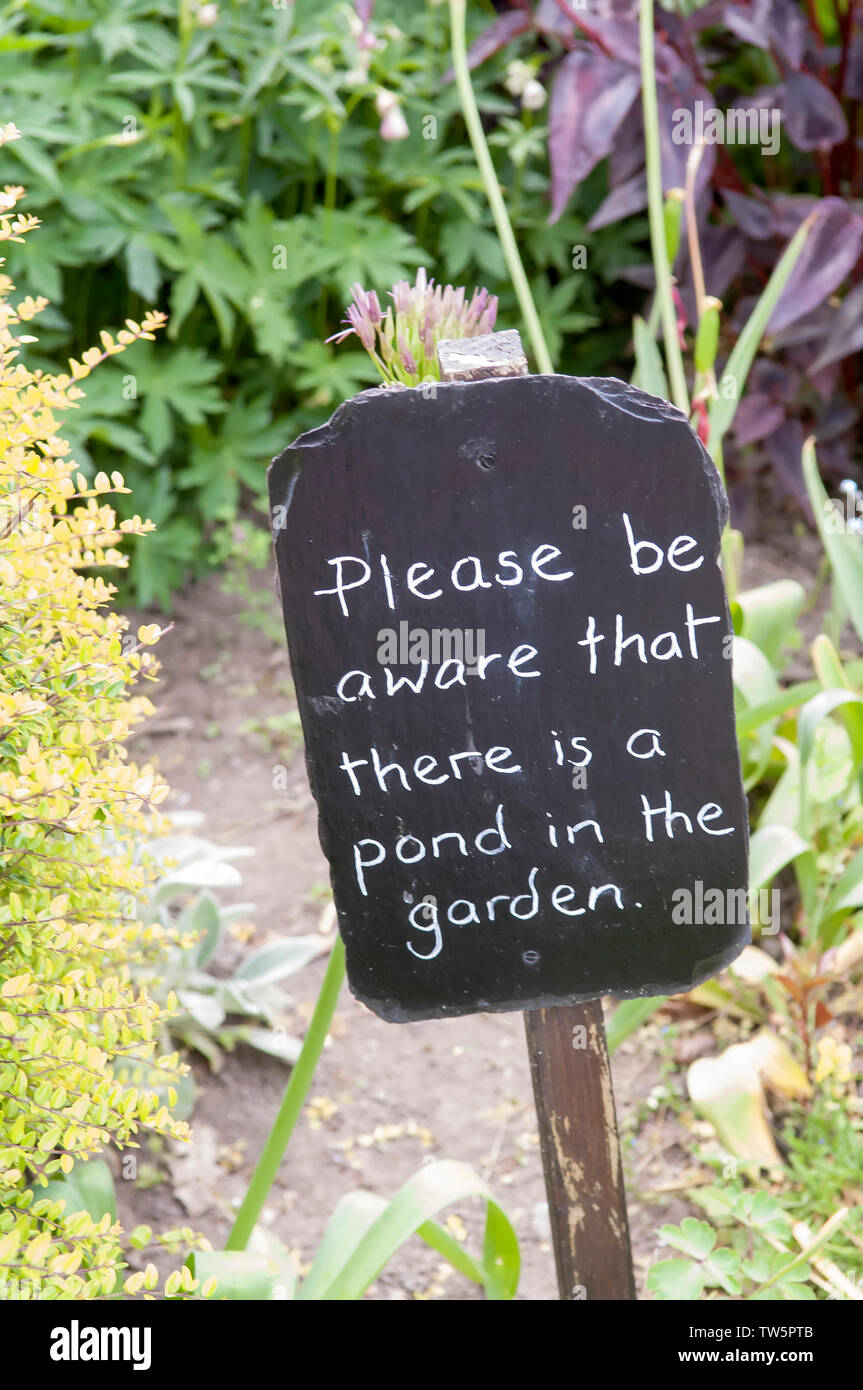 Please be
aware that
there is a
pond in the
garden.
alamy
alamy
Image ID: TW5PTB
www.alamy.com